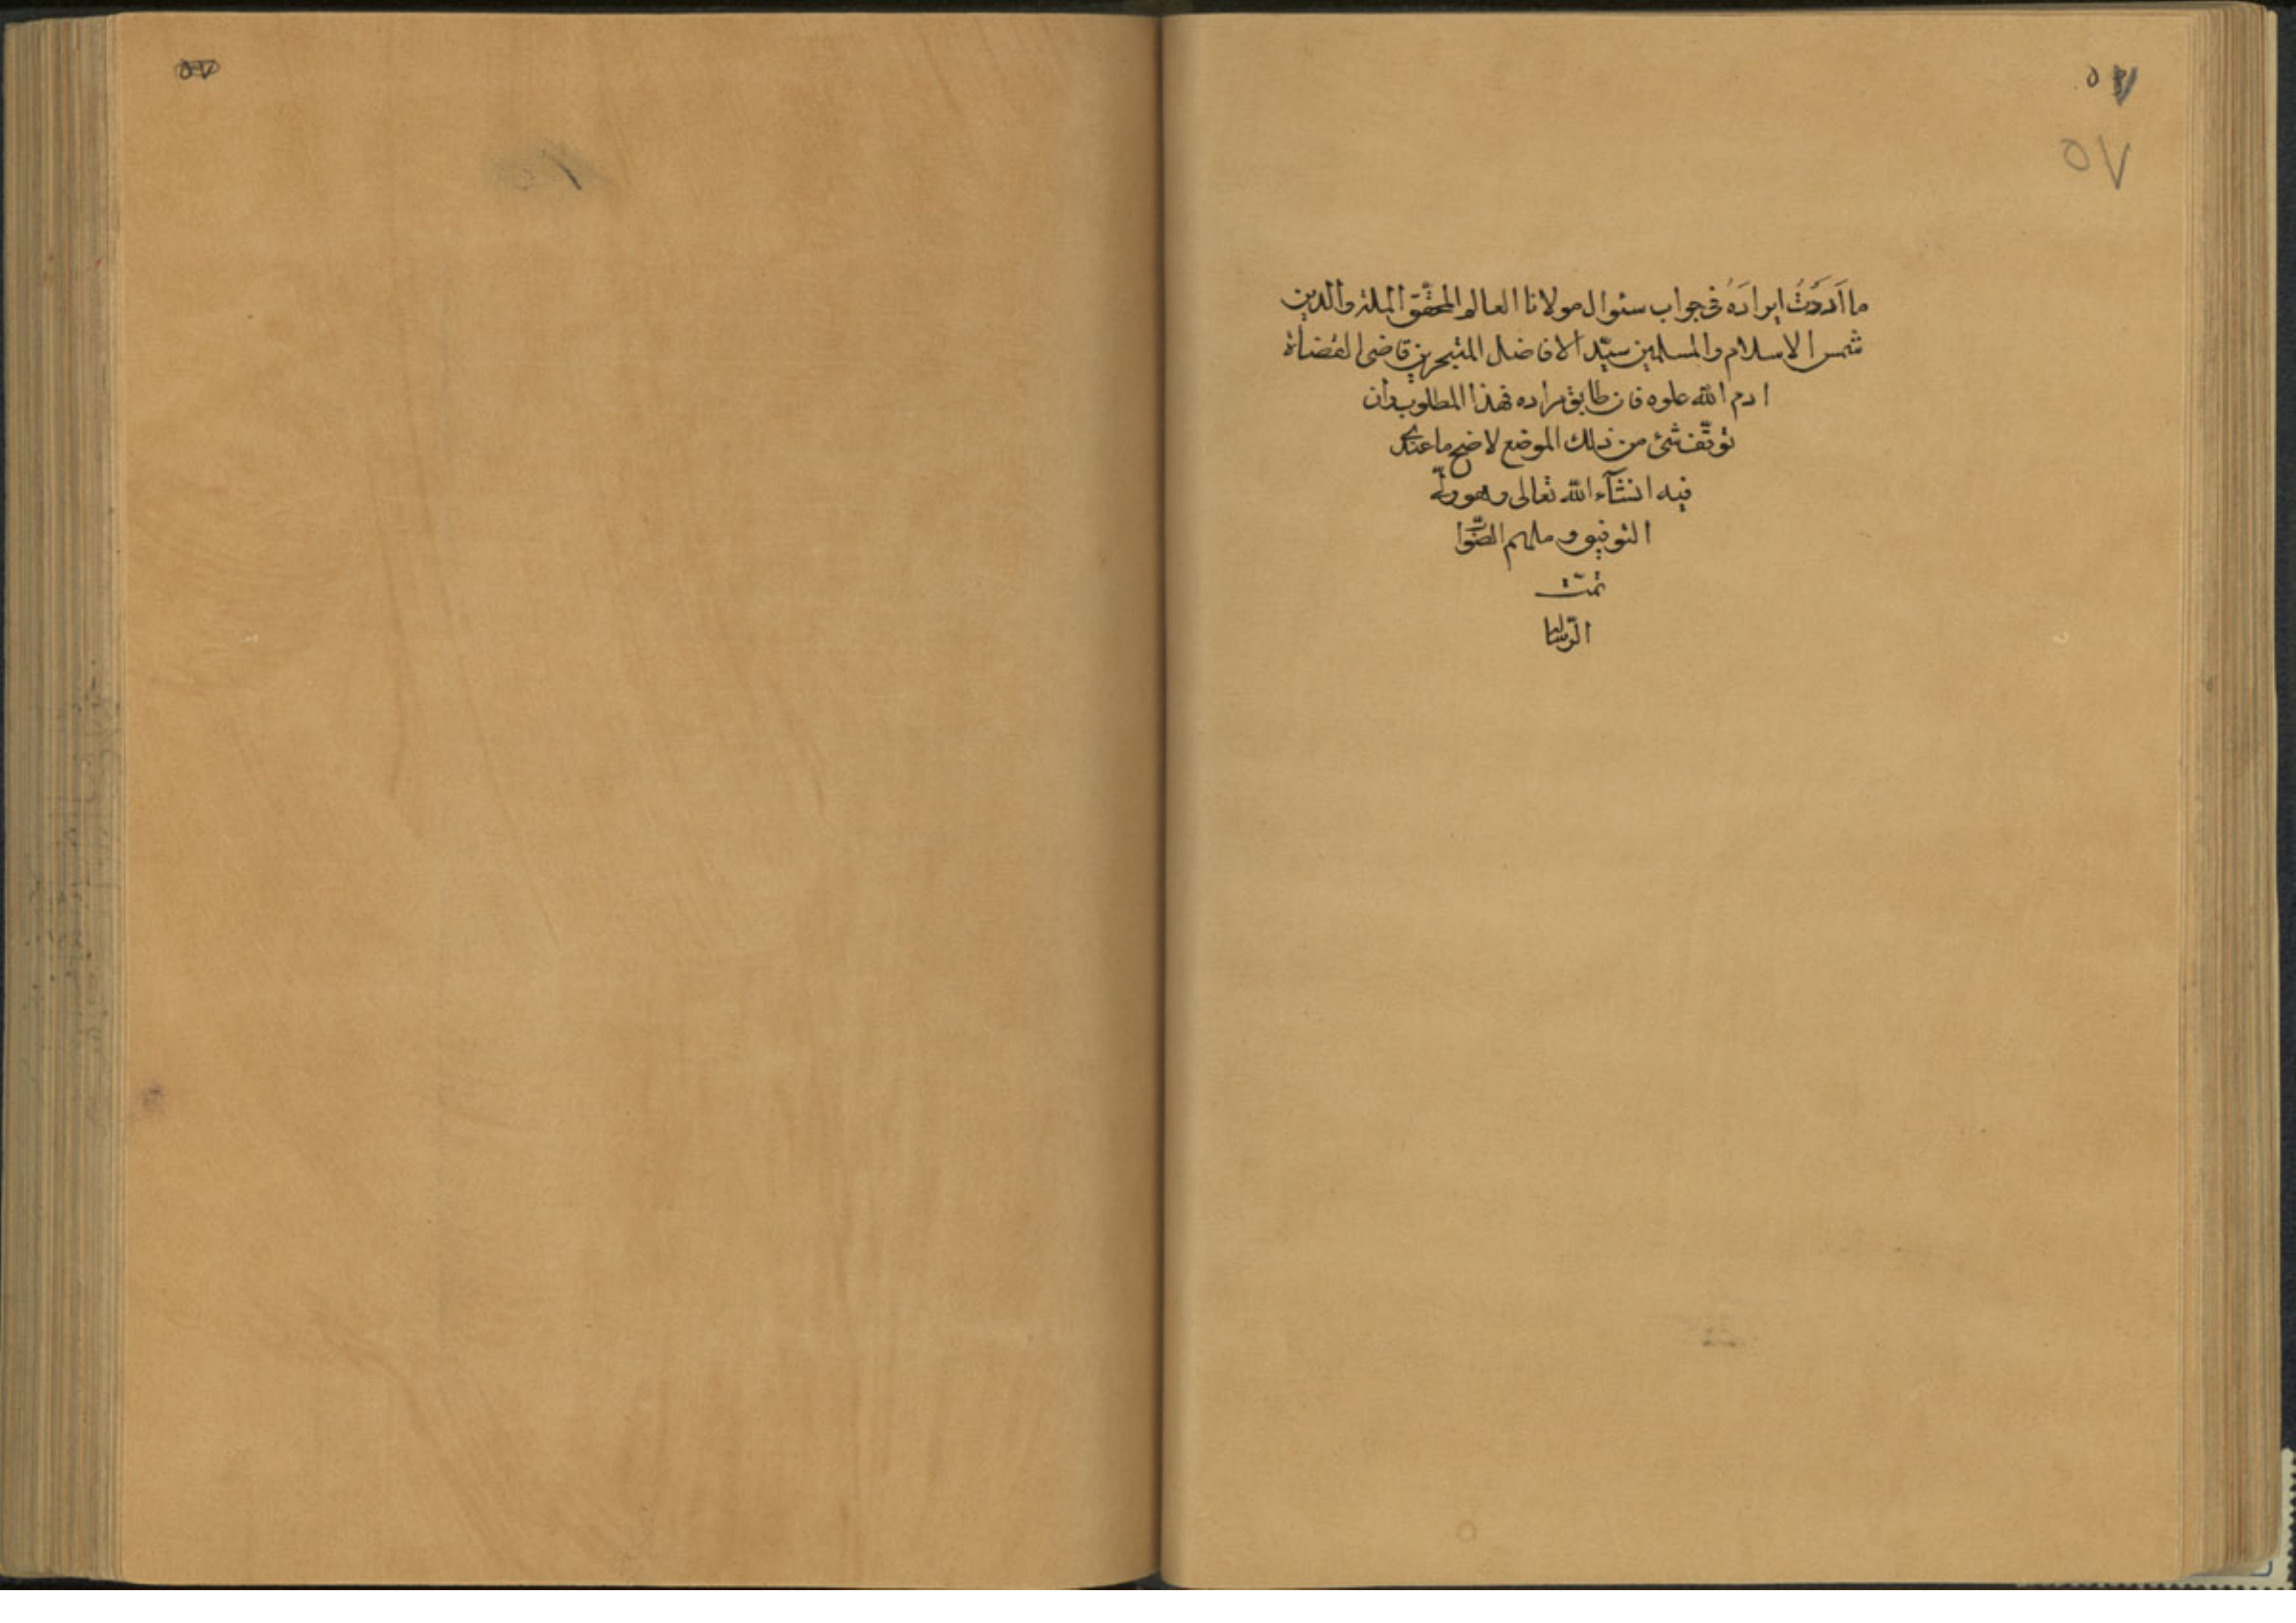 ٥٧
ما اَردَتُ ايرادَهُ فى جواب سئوال مولانا العالم المحقّق الملة والدين
شمس الاسلام والمسلمين سيّد الافاضل المتبحرين قاضى القضاة
ادم الله علوه فان طابق مراده فهذا المطلوب وان
توقّف شئ من ذلك الموضع لاضح ما عندى
فيه انشآء الله تعالى وهو ولىّ
التوفيق وملهم الصّواب
تمتّ
الرّسالة
٥٧